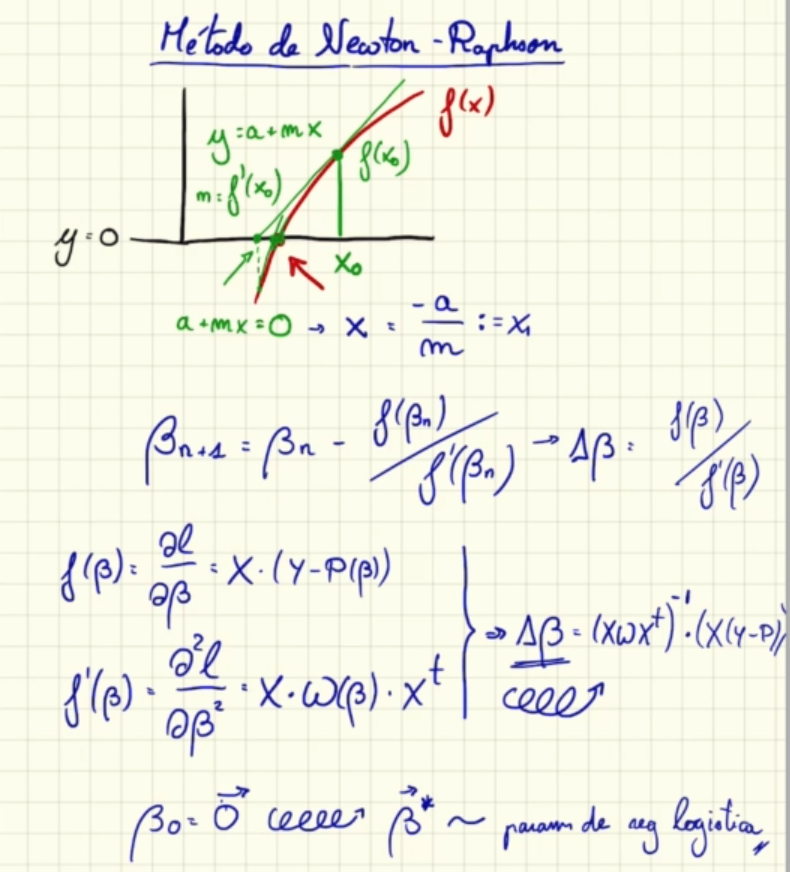 Método de Newton-Raphson
f(x)
y=a+mx
f(x₀)
m=f'(x₀)
y=0
x₀
a+mx=0 → x = -a/m := x₁
βn+1 = βn - f(βn)/f'(βn) → Δβ = f(β)/f'(β)
f(β) = ∂l/∂β = X·(Y-P(β))
⇒ Δβ = (XWX^t)^-1·(X(Y-P))
f'(β) = ∂²l/∂β² = X·W(β)·X^t
β₀ = 0⃗ β⃗* ~ param de reg logistica